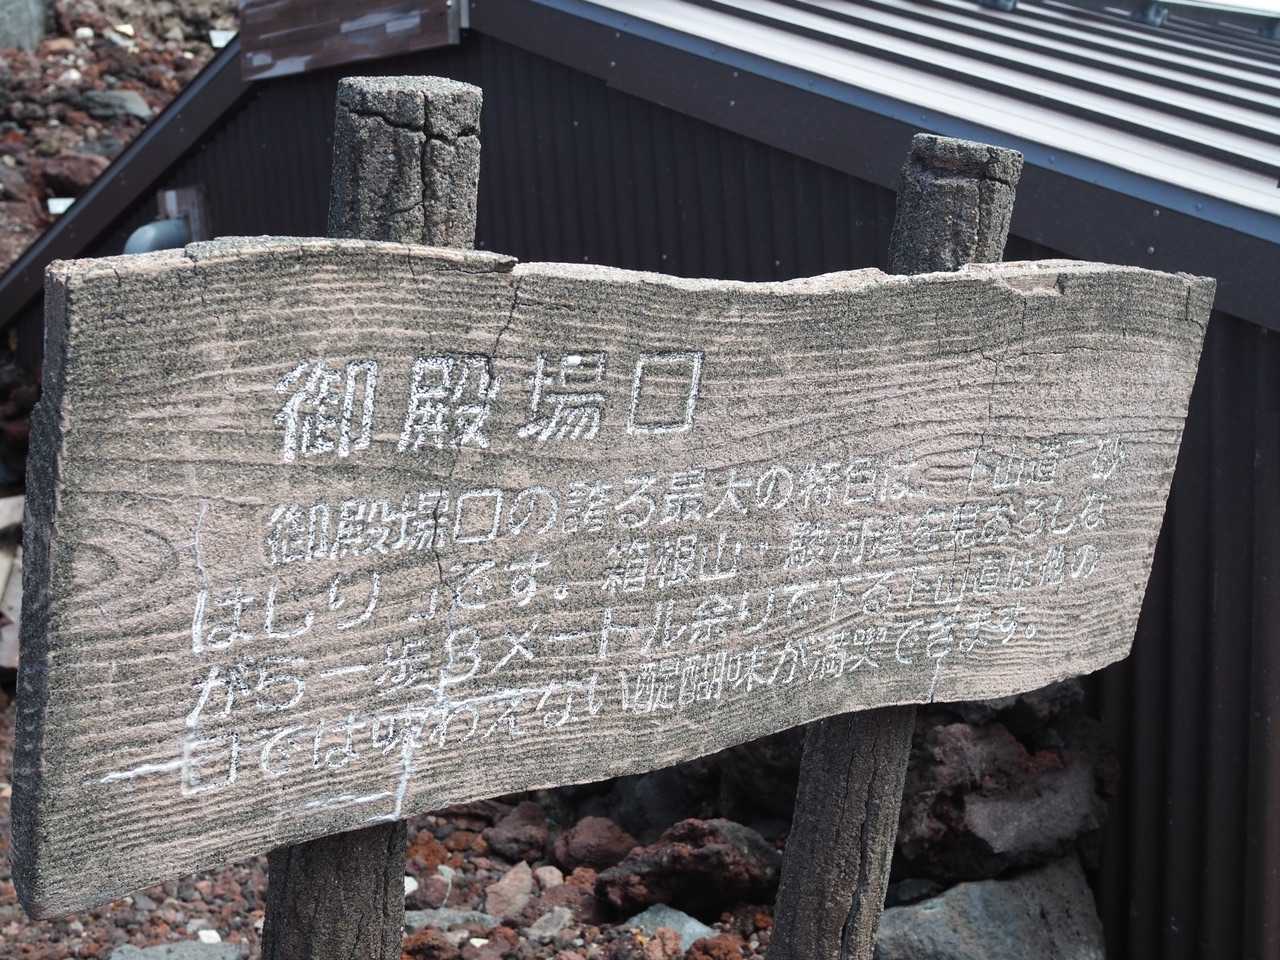 御殿場口
御殿場口の誇る最大の特色は、下山道「砂
はしり」です。箱根山・駿河湾を見おろしな
がら一歩3メートル余りで下る下山道は他の
口では味わえない醍醐味が満喫できます。